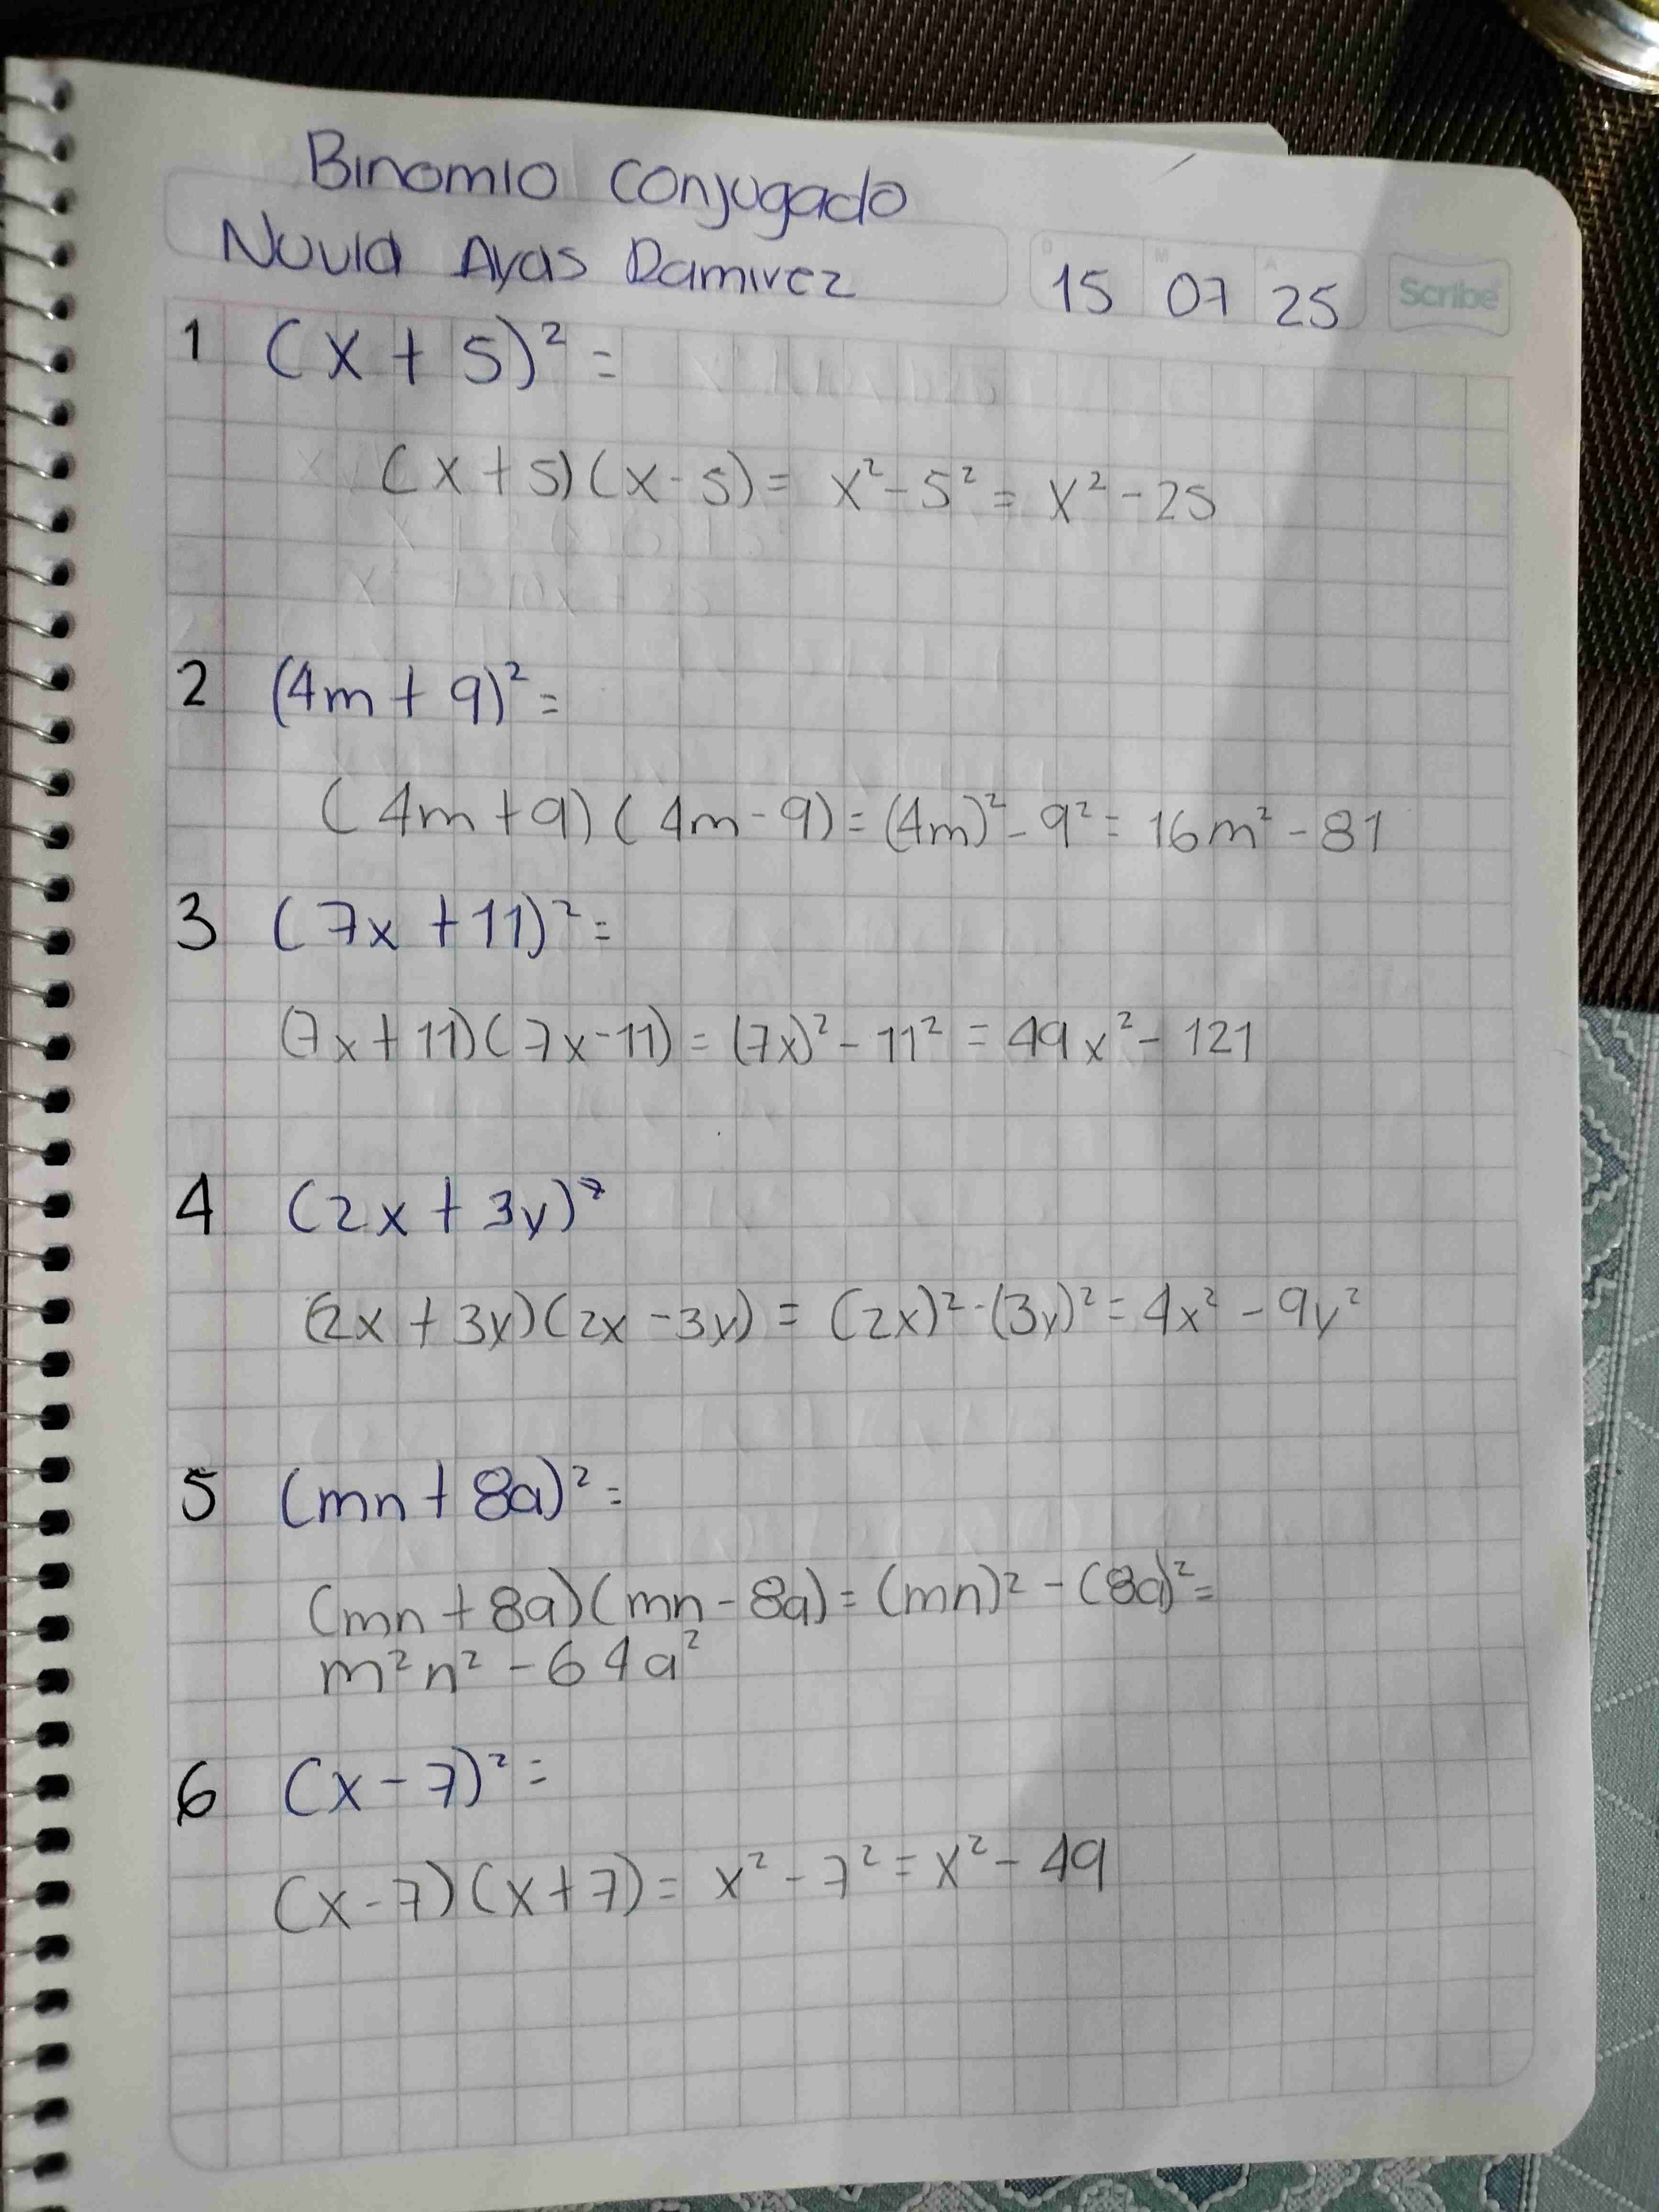 Binomio conjugado
Ayas Ramirez
15 07 25 Scribe
1 (x + 5)² =
(x + 5)(x - 5) = x² - 5² = x² - 25
2 (4m + 9)² =
(4m + 9)(4m - 9) = (4m)² - 9² = 16m² - 81
3 (7x + 11)² =
(7x + 11)(7x - 11) = (7x)² - 11² = 49x² - 121
4 (2x + 3y)²
(2x + 3y)(2x - 3y) = (2x)² - (3y)² = 4x² - 9y²
5 (mn + 8a)² =
(mn + 8a)(mn - 8a) = (mn)² - (8a)² =
m²n² - 64a²
6 (x - 7)² =
(x - 7)(x + 7) = x² - 7² = x² - 49